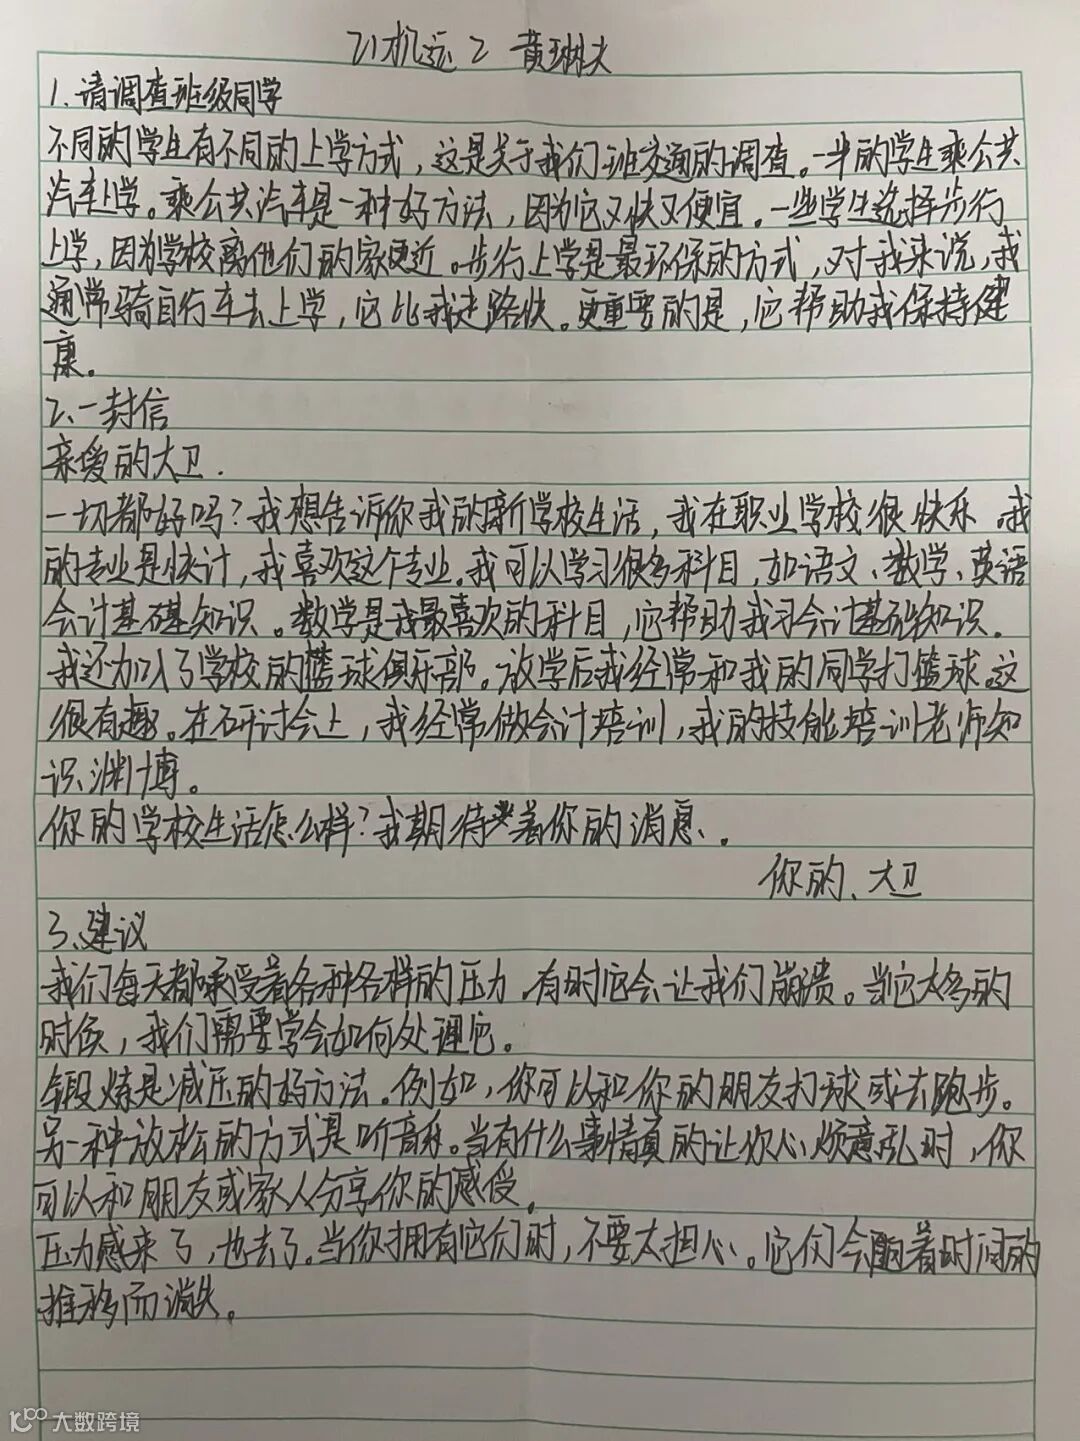 21机远2 黄琳大
1.请调查班级同学
不同的学生有不同的上学方式，这是关于我们班交通的调查。一半的学生乘公共
汽车上学。乘公共汽车是一种好方法，因为它又快又便宜。一些学生选择步行
上学，因为学校离他们的家更近。步行上学是最环保的方式，对我来说，我
通常骑自行车去上学，它比我走路快。更重要的是，它帮助我保持健
康。
2、一封信
亲爱的大卫.
一切都好吗？我想告诉你我的新学校生活，我在职业学校很快乐。我
的专业是快计，我喜欢这个专业。我可以学习很多科目，如语文、数学、英语
会计基础知识。数学是我最喜欢的科目，它帮助我习会计基础知识.
我还加入了学校的篮球俱乐部。放学后我经常和我的同学打篮球。这
很有趣。在研讨会上，我经常做会计培训，我的技能培训老师知
识渊博。
你的学校生活怎么样？我期待着你的消息、.
你的、大卫
3、建议
我们每天都承受着各种各样的压力.有时它会让我们崩溃。当它太多的
时侯，我们需要学会如何处理它。
锻炼是减压的好方法。例如，你可以和你的朋友打球或去跑步。
另一种放松的方式是听音乐。当有什么事情真的让你心烦意乱时，你
可以和朋友或家人分享你的感受。
压力感来了，也去了。当你拥有它们时，不要太担心。它们会随着时间的
推移而消失。
大数跨境